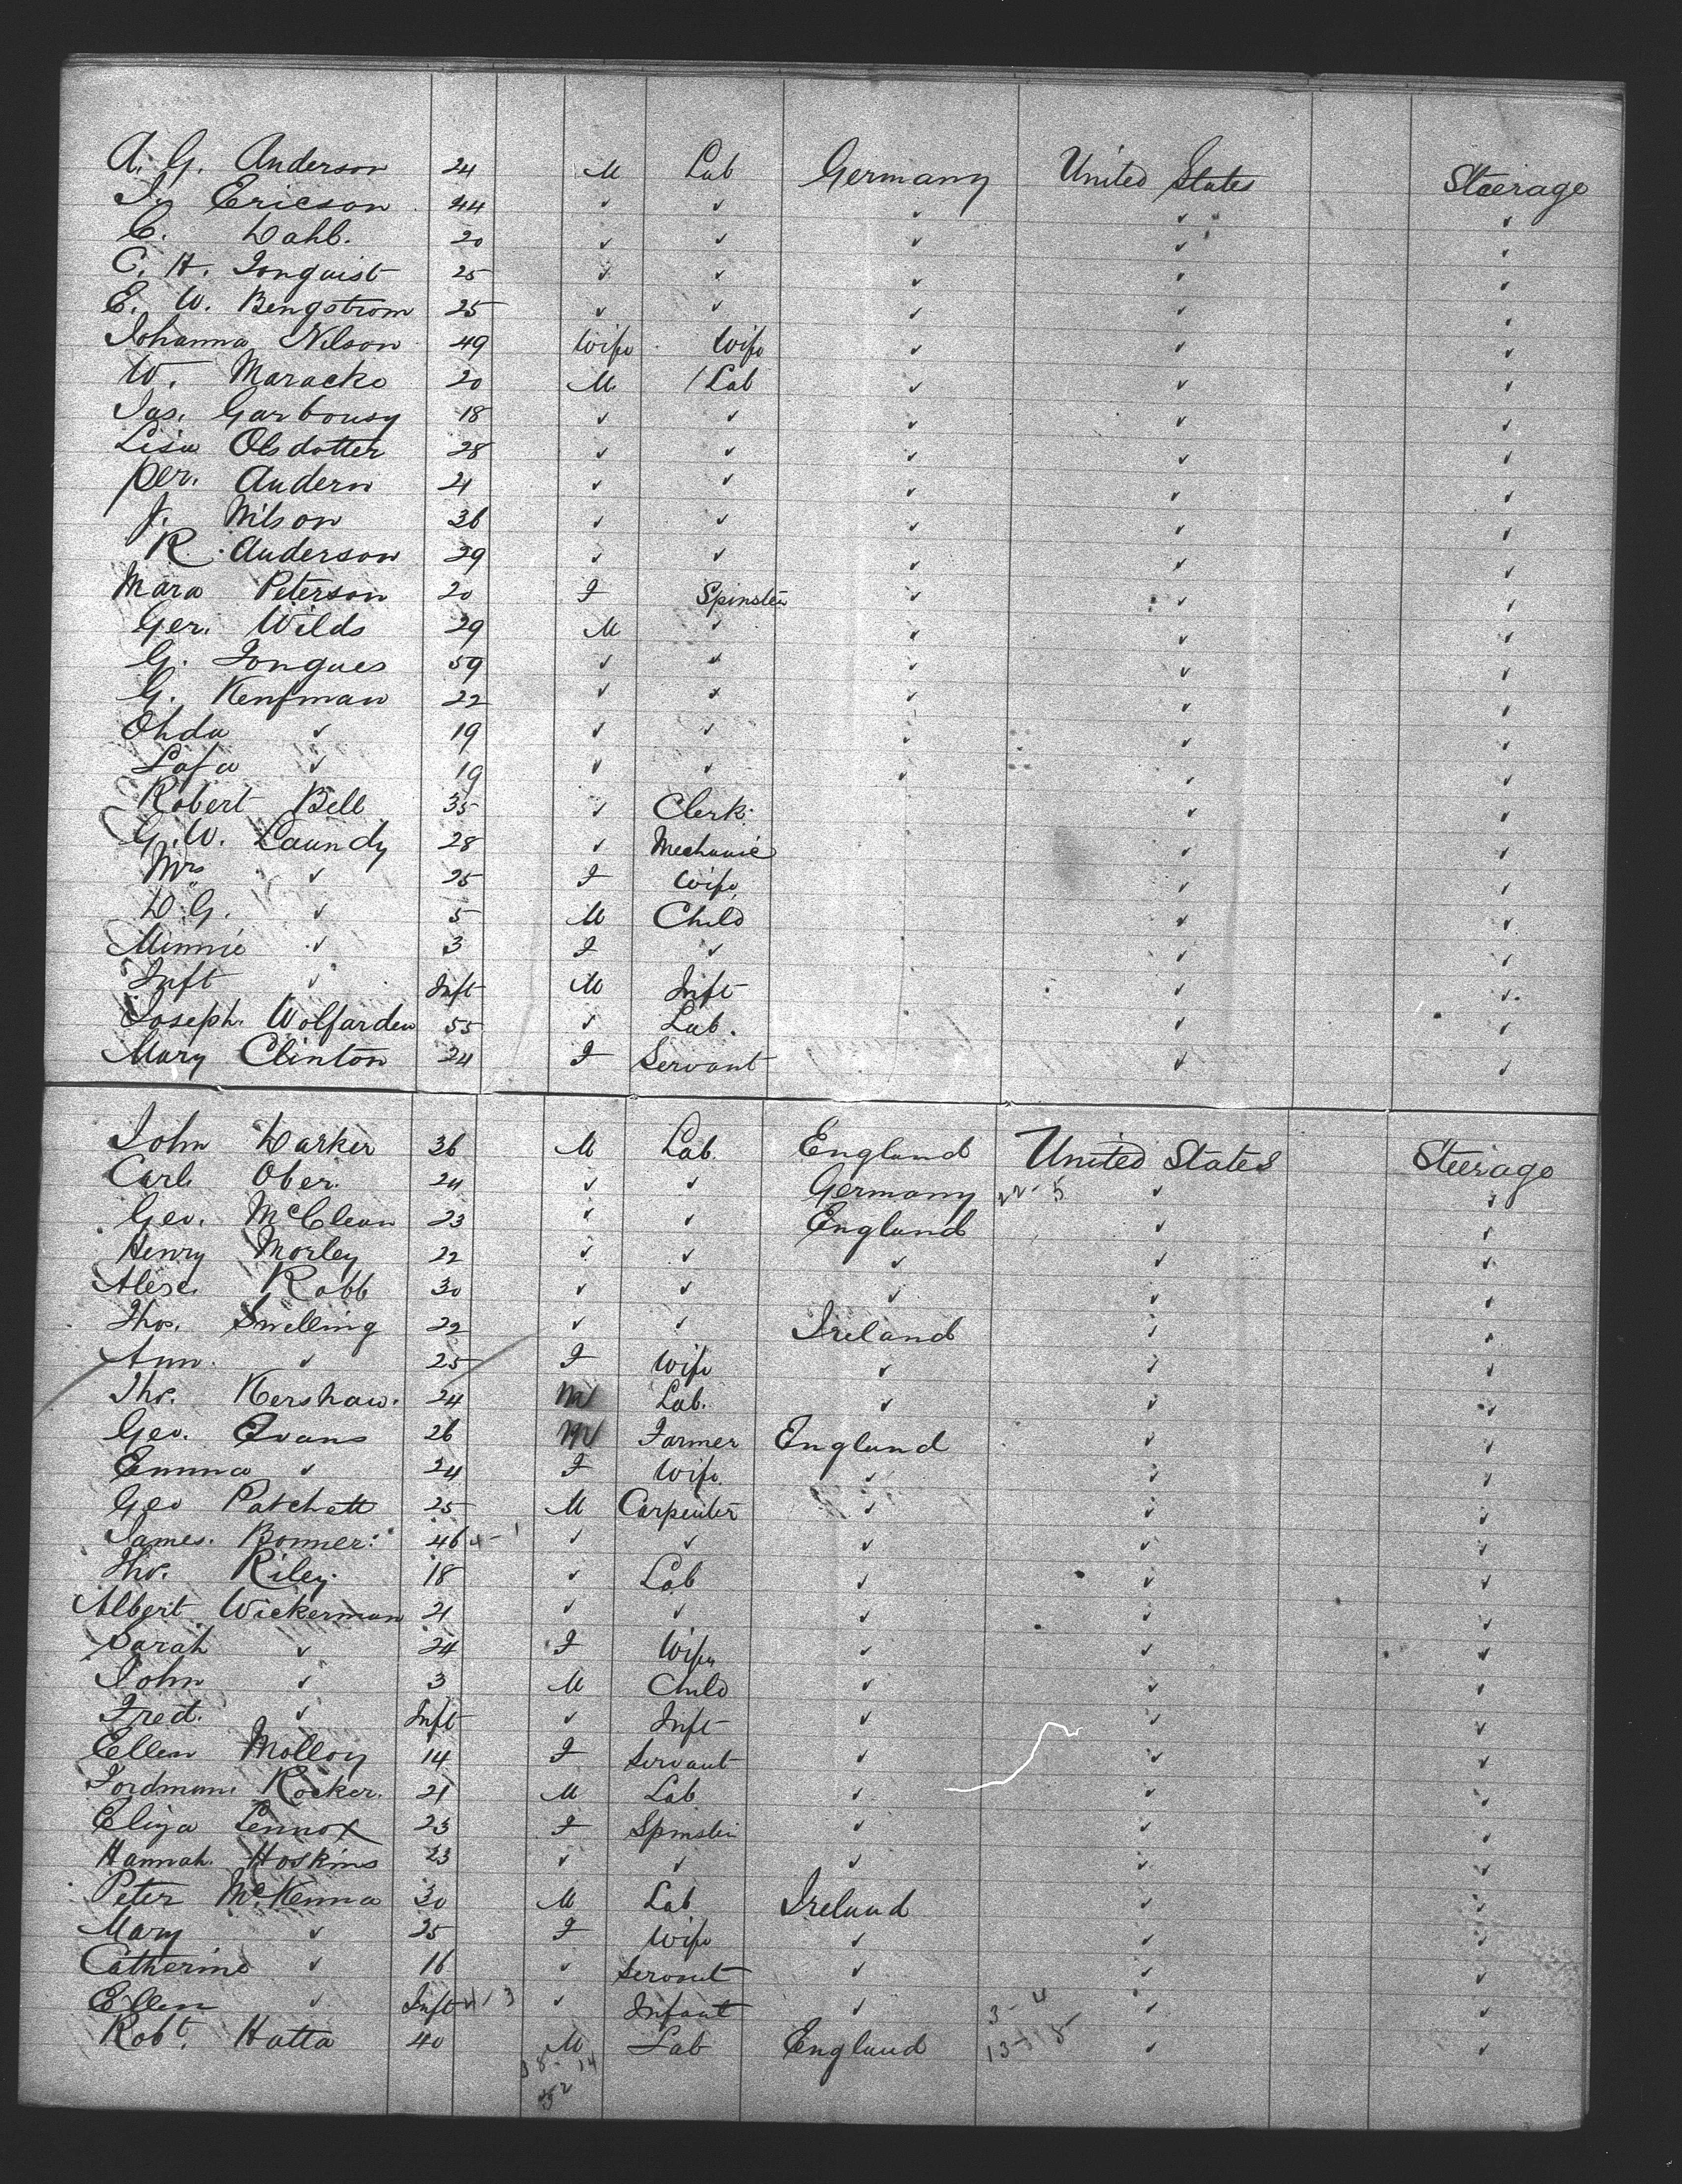 A. G. Anderson 24 M Lab Germany United States Steerage
J. Ericson 44 ✓ ✓ ✓ ✓ ✓
C. Dahl. 20 ✓ ✓ ✓ ✓ ✓
C. A. Jonquist 25 ✓ ✓ ✓ ✓ ✓
E. W. Bengstrom 25 ✓ ✓ ✓ ✓ ✓
Johanna Nilson 49 Wife Wife ✓ ✓ ✓
W. Maracke 20 M Lab ✓ ✓ ✓
Jas. Garbousy 18 ✓ ✓ ✓ ✓ ✓
Lisa Olsdotter 28 ✓ ✓ ✓ ✓ ✓
Per. Andern 21 ✓ ✓ ✓ ✓ ✓
J. Nilson 36 ✓ ✓ ✓ ✓ ✓
R. Anderson 29 ✓ ✓ ✓ ✓ ✓
Mara Peterson 20 F Spinster ✓ ✓ ✓
Ger. Wilds 29 M ✓ ✓ ✓ ✓
G. Jongues 59 ✓ ✓ ✓ ✓ ✓
G. Kenfman 22 ✓ ✓ ✓ ✓ ✓
Ohda ✓ 19 ✓ ✓ ✓ ✓ ✓
Lafa ✓ 19 ✓ ✓ ✓ ✓ ✓
Robert Bell 35 ✓ Clerk ✓ ✓
G. W. Laundy 28 ✓ Mechanic ✓ ✓
Mrs ✓ 25 F Wife ✓ ✓
D. G. ✓ 5 M Child ✓ ✓
Minnie ✓ 3 F ✓ ✓ ✓
Inft ✓ Inft M Inft ✓ ✓
Joseph Wolfarden 55 ✓ Lab. ✓ ✓
Mary Clinton 24 F Servant ✓ ✓
John Darker 36 M Lab. England United States Steerage
Carl Ober. 24 ✓ ✓ Germany ✓ ✓
Geo. McClean 23 ✓ ✓ England ✓ ✓
Henry Morley 22 ✓ ✓ ✓ ✓ ✓
Alex. Robb 30 ✓ ✓ ✓ ✓ ✓
Thos. Swelling 22 ✓ ✓ Ireland ✓ ✓
Ann. ✓ 25 F Wife ✓ ✓ ✓
Tho. Kershaw. 24 M Lab. ✓ ✓ ✓
Geo. Evans 26 M Farmer England ✓ ✓
Emma ✓ 24 F Wife. ✓ ✓ ✓
Geo Patchett 25 M Carpenter ✓ ✓ ✓
James. Bonner. 46 ✓ ✓ ✓ ✓ ✓
Tho. Riley. 18 ✓ Lab ✓ ✓ ✓
Albert Wickerman 21 ✓ ✓ ✓ ✓ ✓
Sarah ✓ 24 F Wife ✓ ✓ ✓
John ✓ 3 M Child ✓ ✓ ✓
Fred. ✓ Inft ✓ Inft ✓ ✓ ✓
Ellen Molloy 14 F Servant ✓ ✓ ✓
Rocker. 21 M Lab ✓ ✓ ✓
Eliza Lennox 23 F Spinster ✓ ✓ ✓
Hannah. Hoskins 23 ✓ ✓ ✓ ✓ ✓
Peter McKenna 30 M Lab Ireland ✓ ✓
Mary ✓ 25 F Wife ✓ ✓ ✓
Catherine ✓ 16 ✓ Servant ✓ ✓ ✓
Ellen ✓ Inft ✓ Infant ✓ ✓ ✓
Robt. Hatta 40 M Lab England ✓ ✓